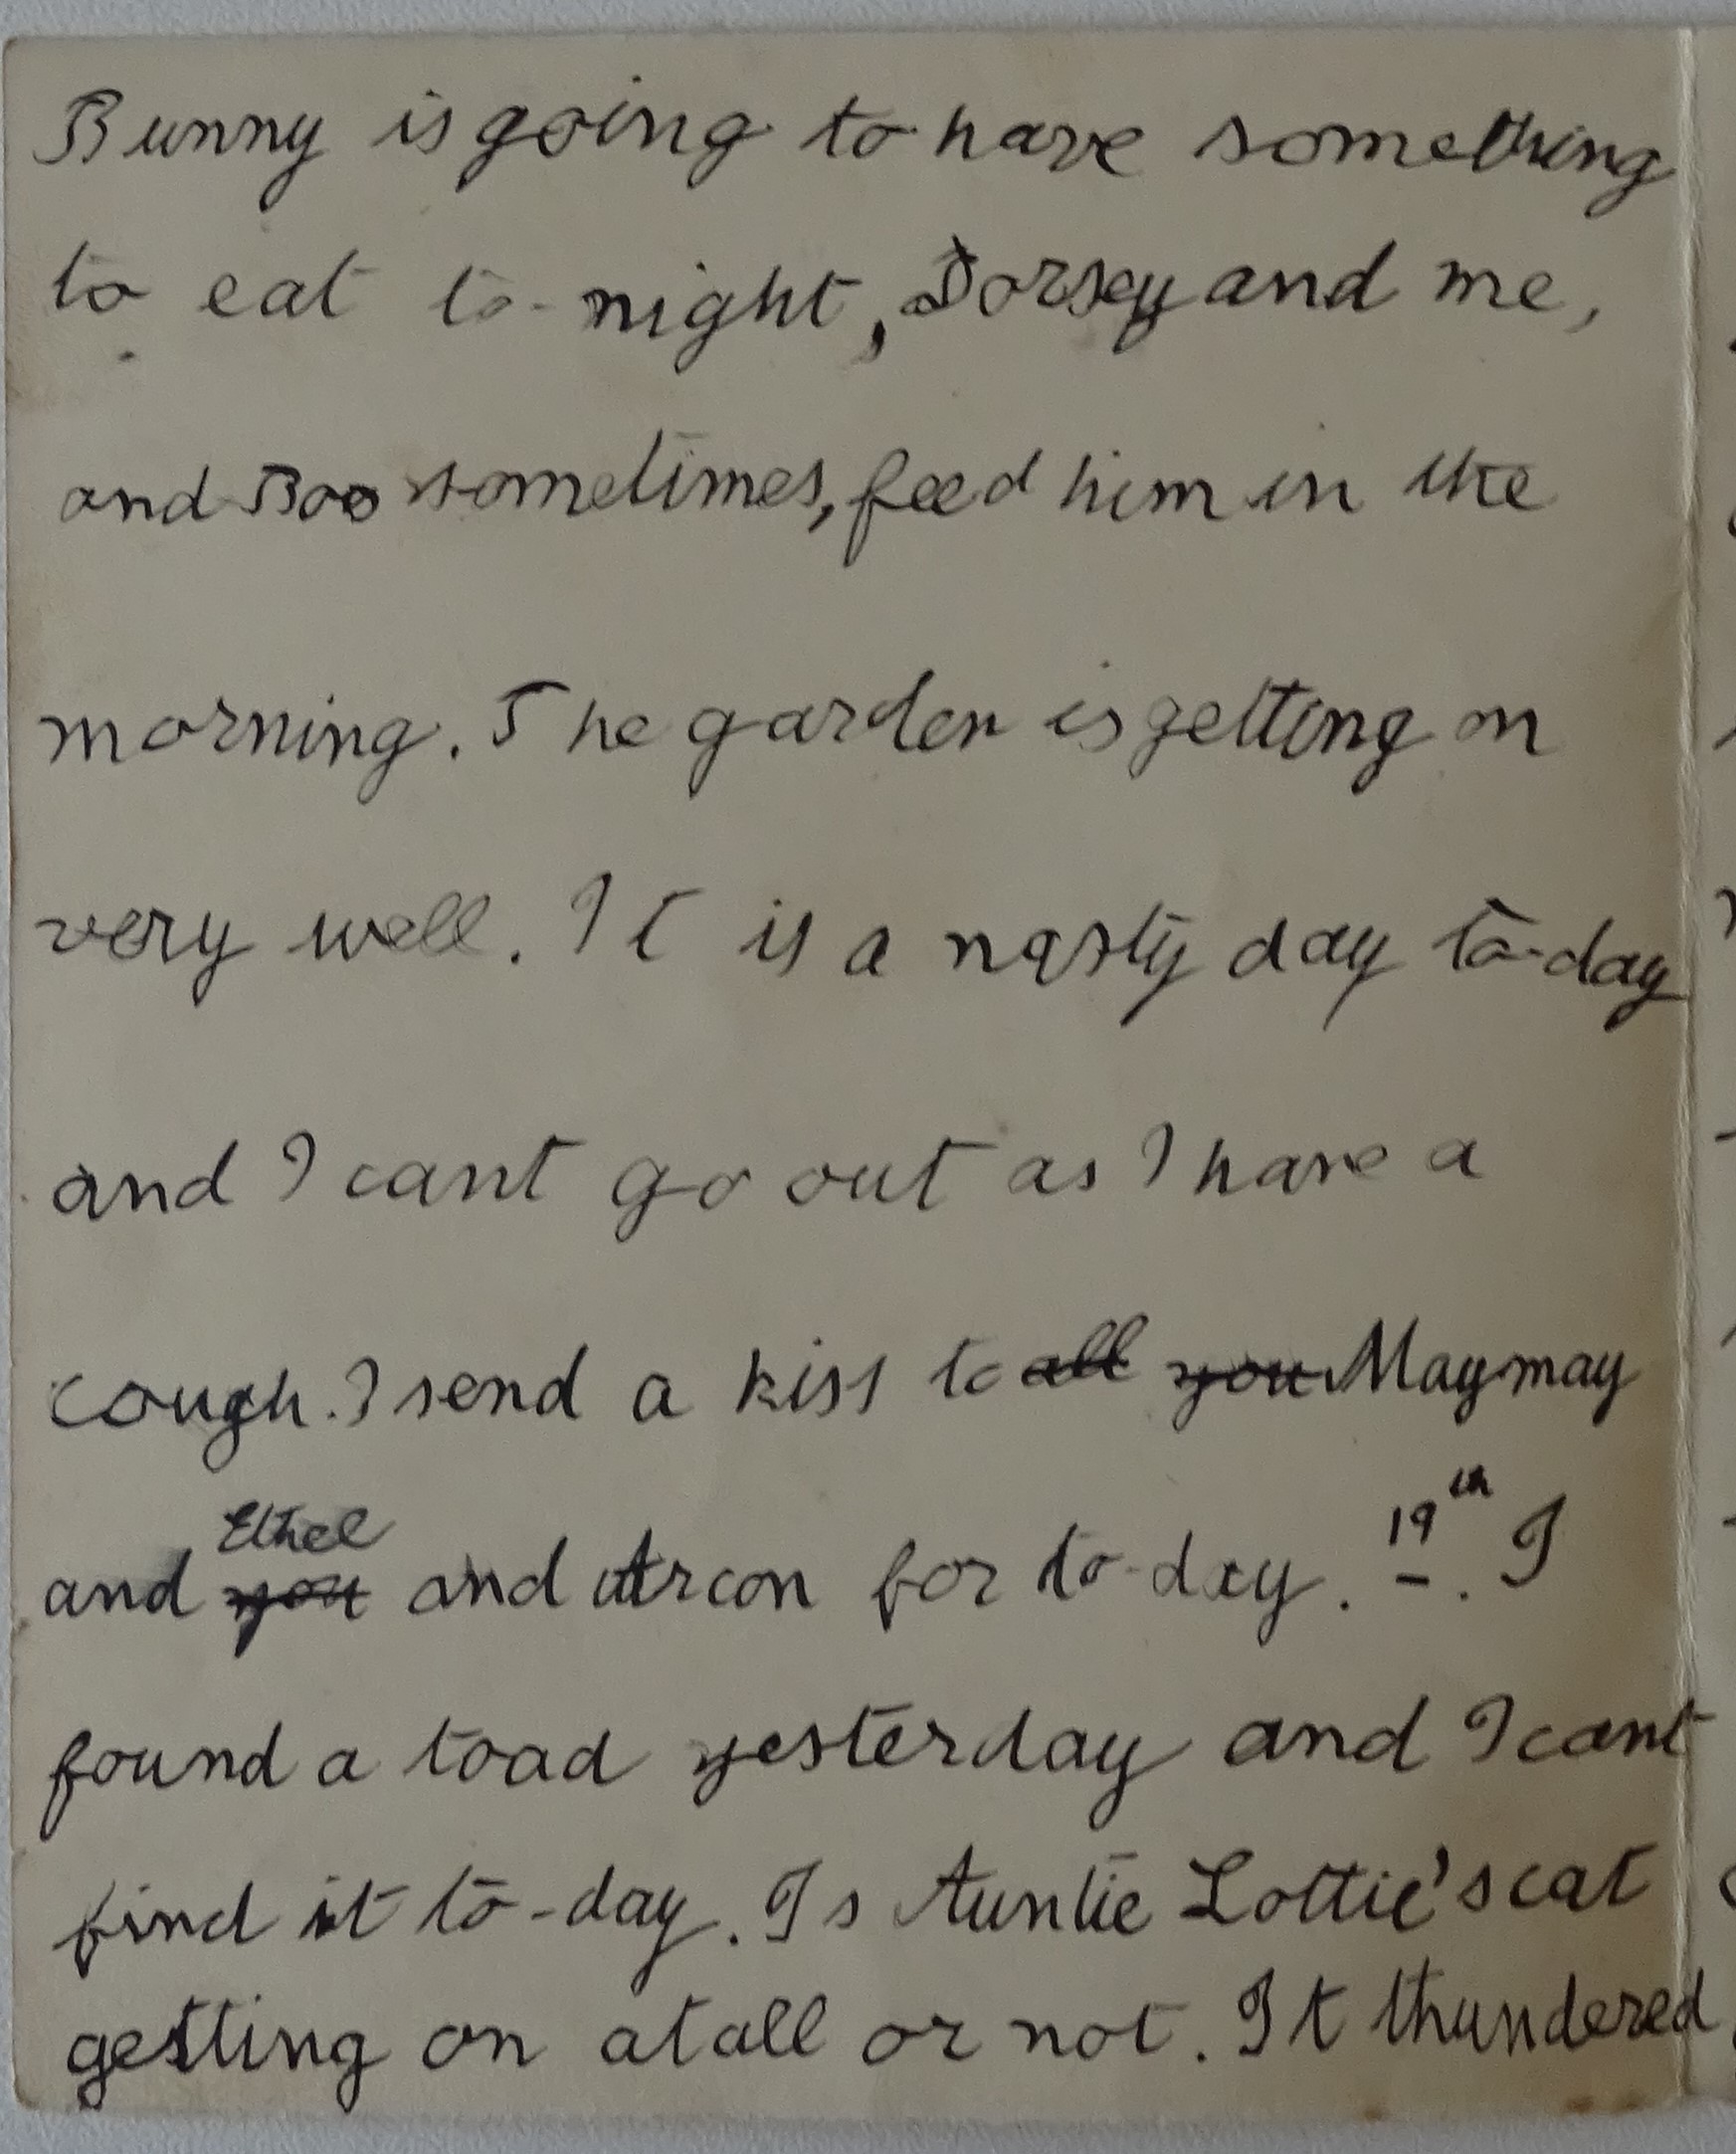 Bunny is going to have something
to eat to-night, Dorsey and me,
and Boo sometimes, feed him in the
morning. The garden is getting on
very well. It is a nasty day to-day
and I cant go out as I have a
cough. I send a kiss to all you Maymay
Ethel
and you and for to-day. 19th. I
found a toad yesterday and I cant
find it to-day. Is Auntie Lottie's cat
getting on at all or not. It thundered